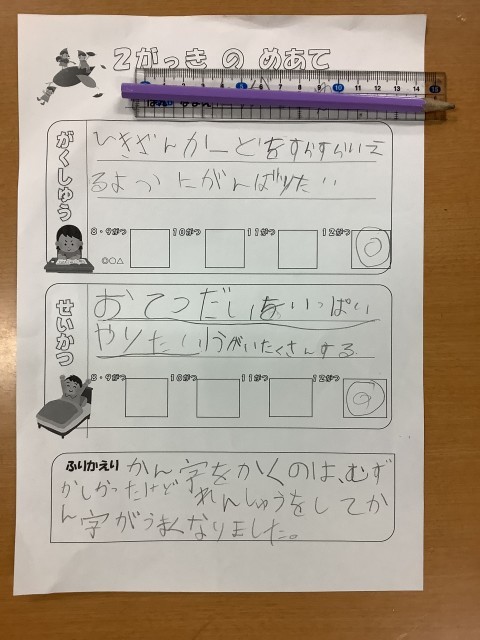 2がっき の めあて
ひきざんカードをすらすらいえ
るように がんばりたい
がくしゅう
8・9がつ 10がつ 11がつ 12がつ
◎○△
おてつだいをいっぱい
やりたい うがいたくさんする
せいかつ
8・9がつ 10がつ 11がつ 12がつ
ふりかえり かん字をかくのは、むず
かしかったけど れんしゅうをしてか
ん字がうまくなりました。